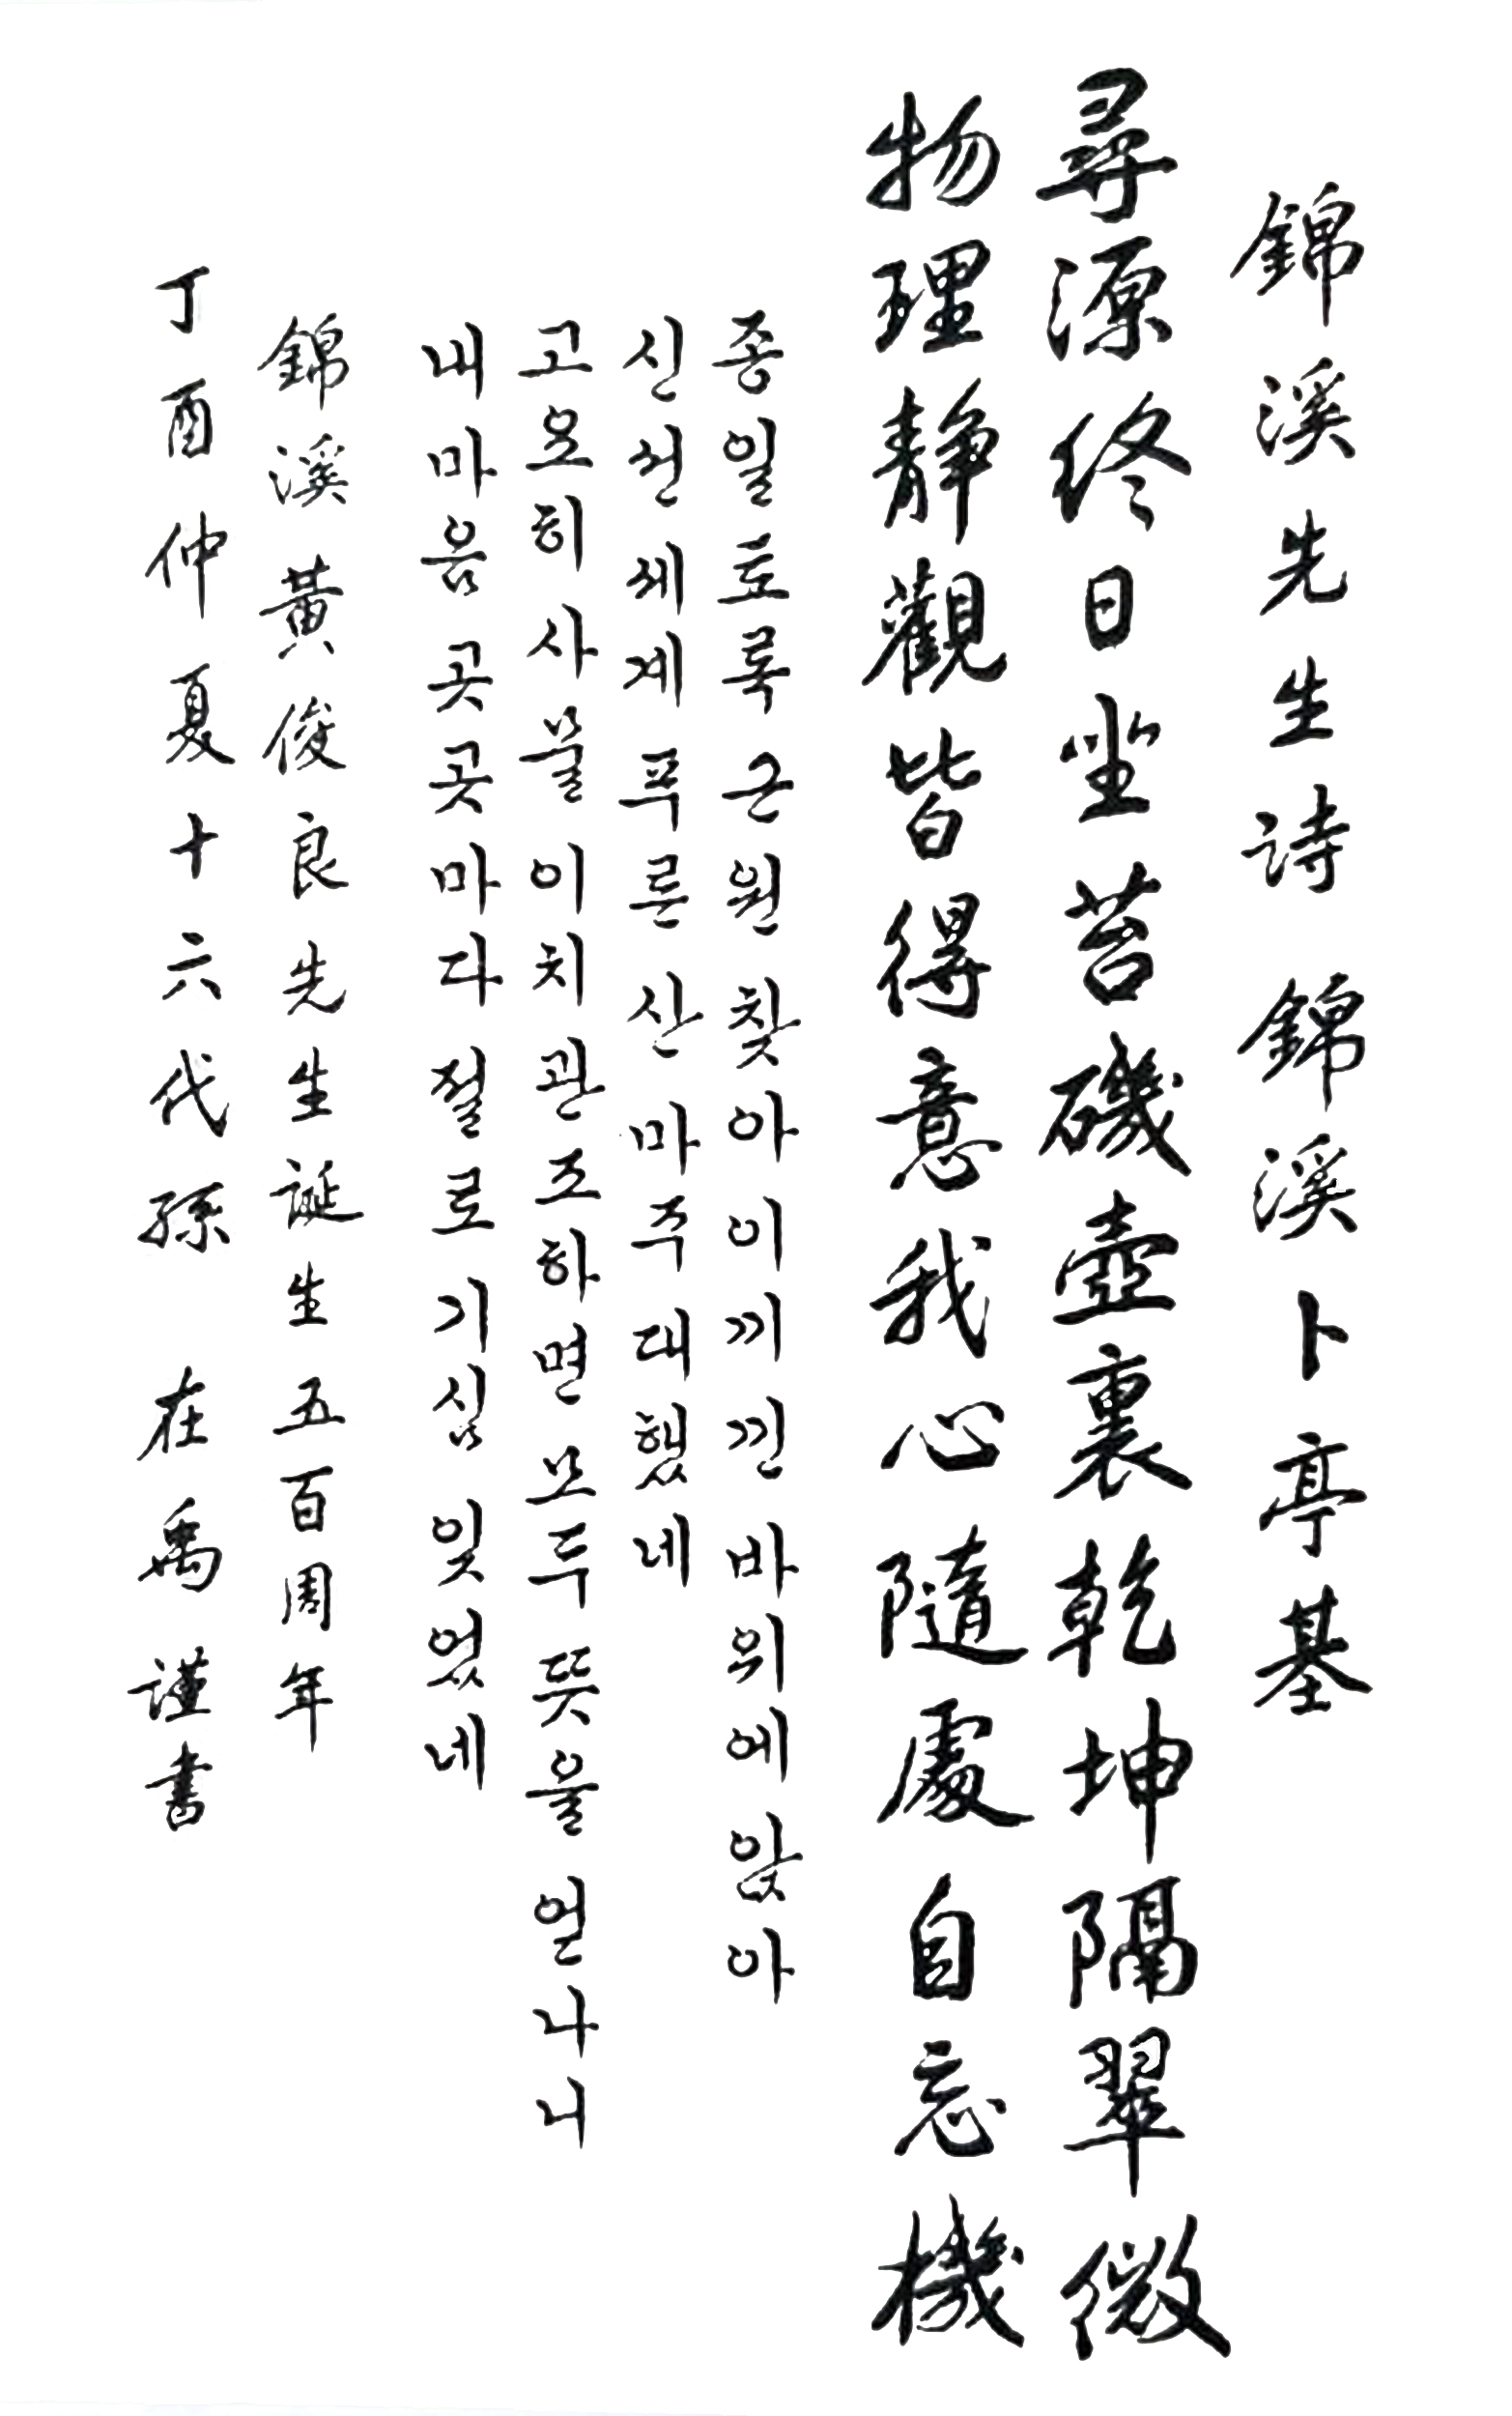 錦溪先生詩 錦溪卜亭基
尋源終日坐苔磯壺裏乾坤隔翠微
物理靜觀皆得意我心隨處自忘機
종일토록 근원 찾아 이끼 낀 바위에 앉아
신선세계 푸른 산 마주 대했네
고요히 사물 이치 관조하면 모두 뜻을 얻나니
내 마음 곳곳마다 절로 기심 잊었네
錦溪黃俊良先生誕生五百周年
丁酉仲夏十六代孫 在禹謹書